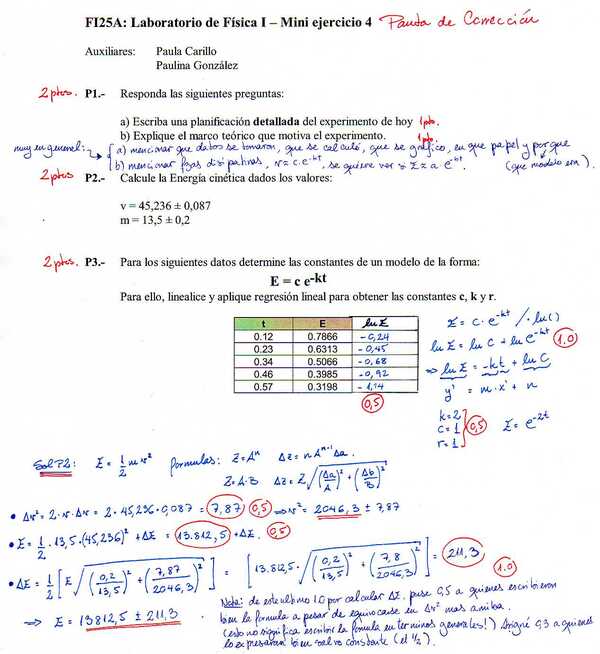 FI25A: Laboratorio de Física I – Mini ejercicio 4 Pauta de Corrección
Auxiliares: Paula Carillo
Paulina González
2 ptos. P1.- Responda las siguientes preguntas:
a) Escriba una planificación detallada del experimento de hoy 1pto.
b) Explique el marco teórico que motiva el experimento. 1pto.
muy en general: a) mencionar que datos se tomaron, que se calculó, que se graficó, en que papel y por que
b) mencionar fzas disipativas, v = c·e^-kt, se quiere ver si E = a e^-kt (que modelo era).
2 ptos P2.- Calcule la Energía cinética dados los valores:
v = 45,236 ± 0,087
m = 13,5 ± 0,2
2 ptos. P3.- Para los siguientes datos determine las constantes de un modelo de la forma:
E = c e^-kt
Para ello, linealice y aplique regresión lineal para obtener las constantes c, k y r.
t E ln E
0.12 0.7866 -0,24
0.23 0.6313 -0,45
0.34 0.5066 -0,68
0.46 0.3985 -0,92
0.57 0.3198 -1,14
0,5
E = c·e^-kt /·ln()
ln E = ln c + ln e^-kt 1.0
⇒ ln E = -kt + ln C
y' = m·x' + n
k=2
c=1 0,5 E = e^-2t
r=1
Sol P2: E = 1/2 m v² formulas: Z=A^n ΔZ = n A^n-1 Δa.
Z=A·B ΔZ = Z √((Δa/A)² + (Δb/B)²)
• Δv² = 2·v·Δv = 2·45,236·0,087 = 7,87 0,5 ⇒ v² = 2046,3 ± 7,87
• E = 1/2 · 13,5·(45,236)² + ΔE = 13.812,5 + ΔE. 0,5
• ΔE = 1/2 [E √((0,2/13,5)² + (7,87/2046,3)²)] = [13.812,5 · √((0,2/13,5)² + (7,8/2046,3)²)] = 211,3 1.0
⇒ E = 13812,5 ± 211,3
Nota: de este ultimo 1.0 por calcular ΔE. puse 0,5 a quienes escribieron
bien la formula a pesar de equivocarse en Δv² mas arriba.
(esto no significa escribir la formula en terminos generales!) Asigné 0,3 a quienes
lo expresaron bien salvo constante (el 1/2).